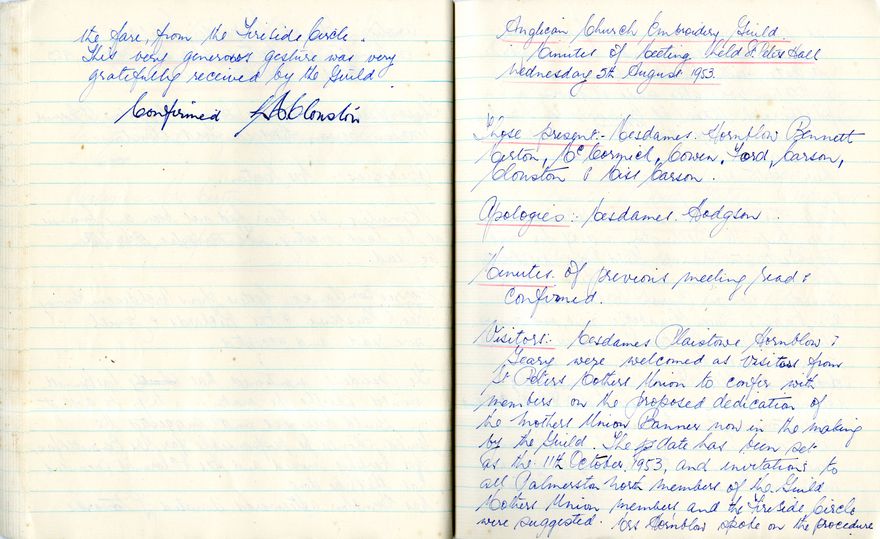 the fare, from the Fireside Circle.
This very generous gesture was very
gratefully received by the Guild.
Confirmed Clouston
Anglican Church Embroidery Guild.
Minutes of Meeting Held St Peters Hall
Wednesday 5th August 1953.
Those present:- Mesdames. Hornflow Bennett
Merton, McCormick, Cowen, Ford, Carson,
Clouston & Miss Carson.
Apologies:- Mesdames. Hodgson.
Minutes of previous meeting read &
confirmed.
Visitors:- Mesdames Plaistowe Hornblow &
Geary were welcomed as Visitors from
St Peters Mothers Union to confer with
members on the proposed dedication of
the Mothers Union Banner now in the making
by the Guild. The date has been set
as the 11th October, 1953, and invitations to
all Palmerston North members of the Guild
Mothers Union members and the Fireside Circle
were suggested. Mrs Hornblow spoke on the procedure